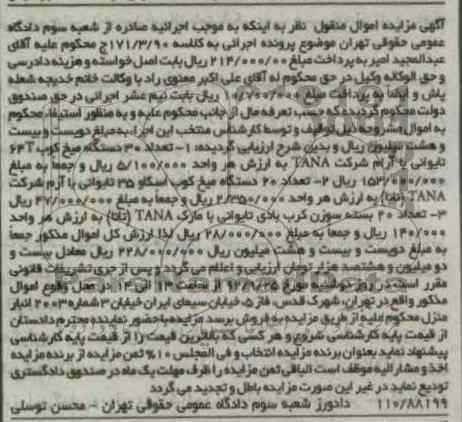 آگهی مزایده اموال منقول نظر به اینکه به موجب اجرائیه صادره از شعبه سوم دادگاه
عمومی حقوقی تهران موضوع پرونده اجرائی به کلاسه ۱۷۱/۳/۹۰ج محکوم علیه آقای
عبدالمجید امیر به پرداخت مبلغ ۲۱۴/۰۰۰/۰۰۰ ریال بابت اصل خواسته و هزینه دادرسی
و حق الوکاله وکیل در حق محکوم له آقای علی اکبر معنوی راد با وکالت خانم خدیجه شعله
پاش و ایضا به پرداخت مبلغ ۱۰/۷۰۰/۰۰۰ ریال بابت نیم عشر اجرائی در حق صندوق
دولت محکوم گردیده که حسب تعرفه مال از جانب محکوم علیه و به منظور استیفاء محکوم
به اموال مشروحه ذیل توقیف و توسط کارشناس منتخب این اجراء به مبلغ دویست و بیست
و هشت میلیون ریال و بدین شرح ارزیابی گردیده: ۱- تعداد ۳۰ دستگاه میخ کوب ۶۴T
تایوانی با آرم شرکت TANA به ارزش هر واحد ۵/۱۰۰/۰۰۰ ریال و جمعا به مبلغ
۱۵۳/۰۰۰/۰۰۰ ریال ۲- تعداد ۲۰ دستگاه میخ کوب اسکاو ۳۵ تایوانی با آرم شرکت
TANA (تانا) به ارزش هر واحد ۲/۳۵۰/۰۰۰ ریال و جمعا به مبلغ ۴۷/۰۰۰/۰۰۰ ریال
۳- تعداد ۲۰ بسته سوزن کرب بادی تایوانی با مارک TANA (تانا) به ارزش هر واحد
۱۴۰/۰۰۰ ریال و جمعا به مبلغ ۲۸/۰۰۰/۰۰۰ ریال لذا ارزش کل اموال مذکور جمعا
به مبلغ دویست و بیست و هشت میلیون ریال ۲۲۸/۰۰۰/۰۰۰ ریال معادل بیست و
دو میلیون و هشتصد هزار تومان ارزیابی و اعلام می گردد و پس از جری تشریفات قانونی
مقرر است در روز دوشنبه مورخ ۹۲/۷/۲۵ از ساعت ۱۳ الی ۱۴ در محل وقوع اموال
مذکور واقع در تهران، شهرک قدس، فاز ۵، خیابان سیمای ایران خیابان ۳ شماره ۲۰۰۳ انبار
منزل محکوم علیه از طریق مزایده به فروش برسد مزایده با حضور نماینده محترم دادستان
از قیمت پایه کارشناسی شروع و هر کسی که بالاترین قیمت را از قیمت پایه کارشناسی
پیشنهاد نماید بعنوان برنده مزایده انتخاب و فی المجلس ۱۰٪ ثمن مزایده از برنده مزایده
اخذ و مشارالیه موظف است الباقی ثمن مزایده را ظرف مهلت یک ماه در صندوق دادگستری
تودیع نماید در غیر این صورت مزایده باطل و تجدید می گردد
۱۱۰/۸۸۱۹۹ دادورز شعبه سوم دادگاه عمومی حقوقی تهران - محسن توسلی